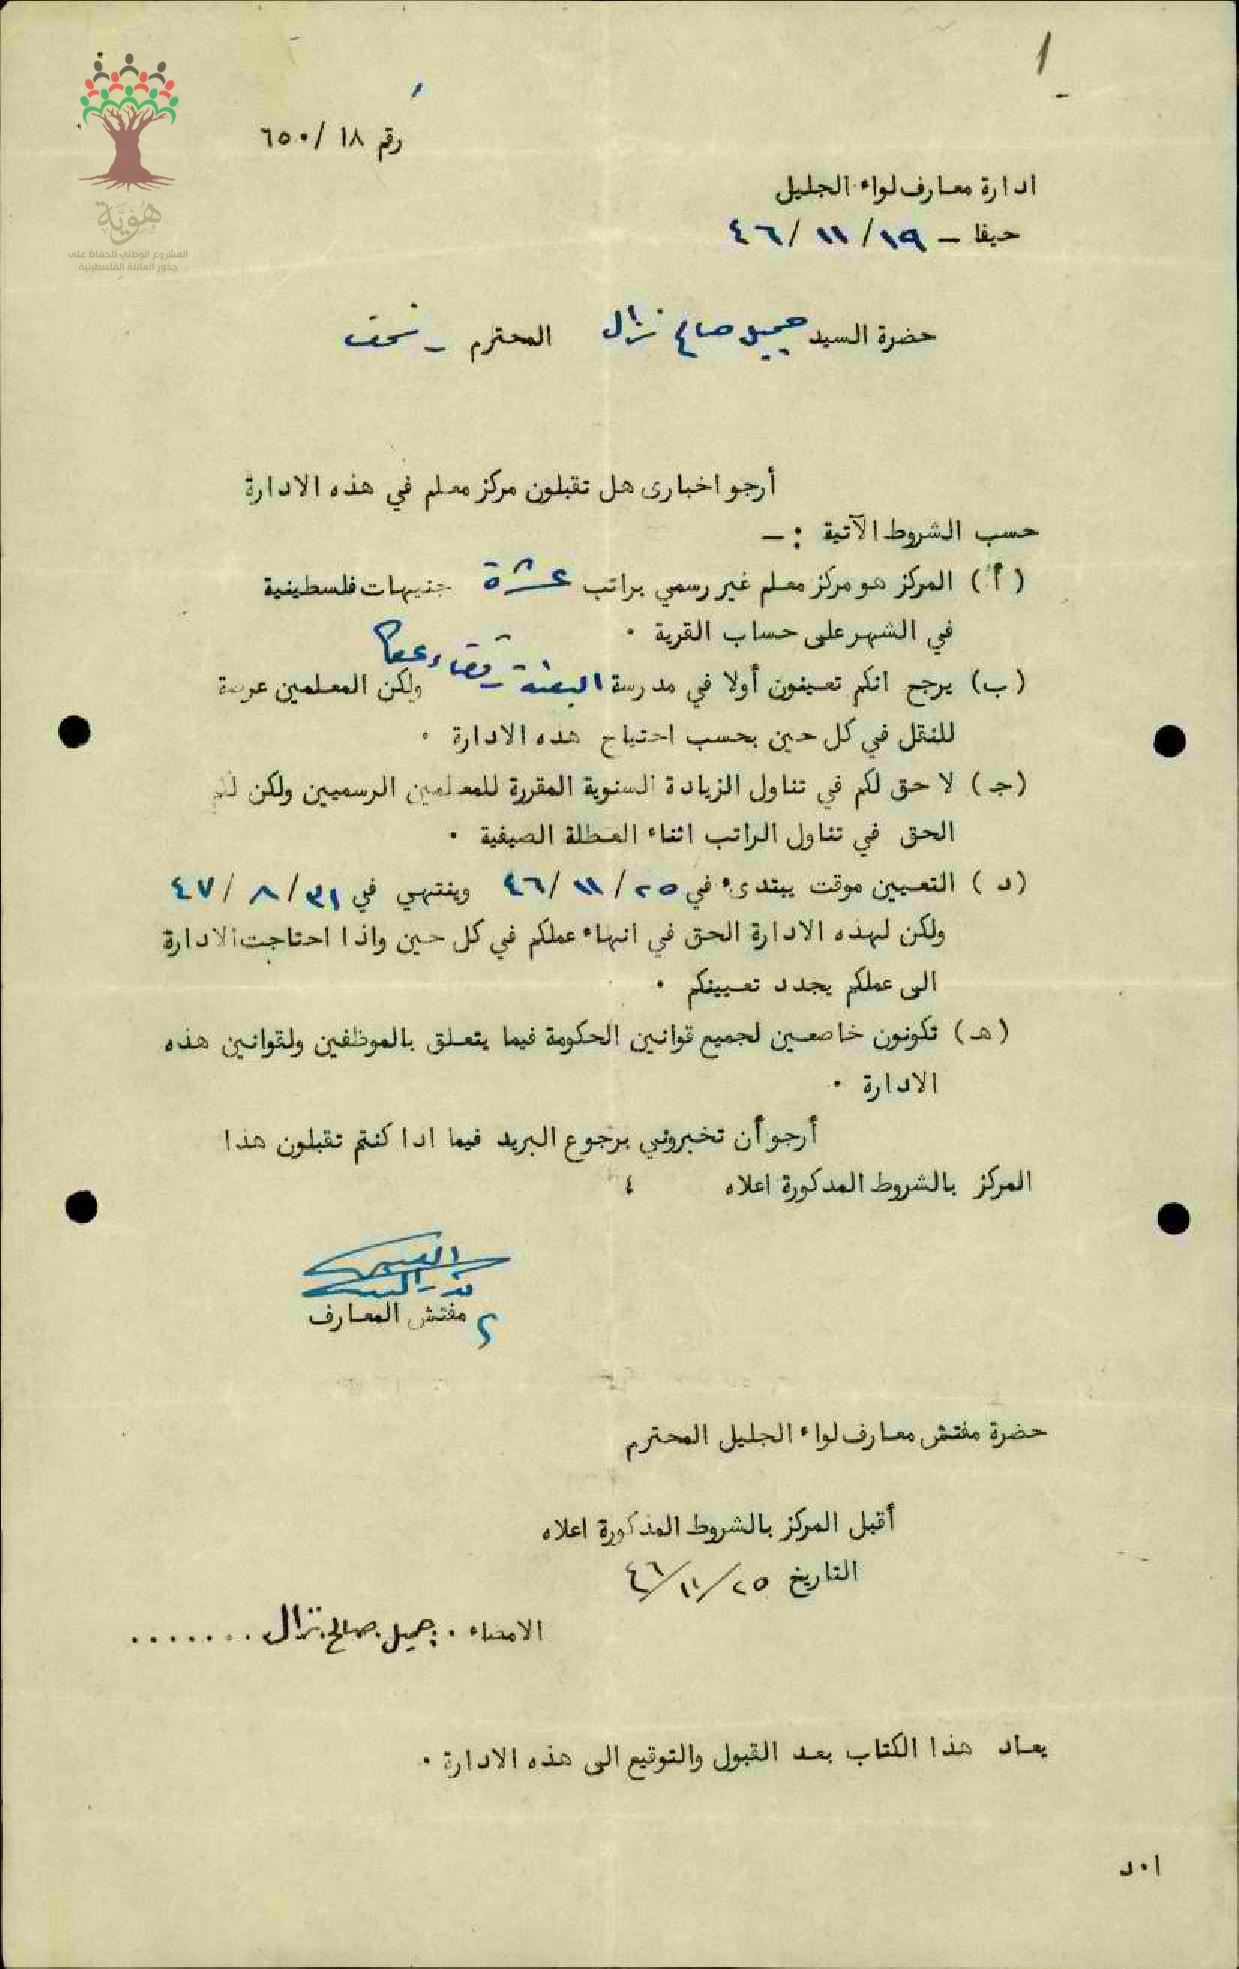 ١
هُويَّة
المشروع الوطني للحفاظ على
جذور العائلة الفلسطينية
رقم ١٨ /٦٥٠
ادارة معارف لواء الجليل
حيفا - ١٩/ ١١/ ٤٦
حضرة السيد جميل صالح نزال المحترم - نحف
أرجو اخبارى هل تقبلون مركز معلم في هذه الادارة
حسب الشروط الآتية :-
(أ) المركز هو مركز معلم غير رسمي براتب عشرة جنيهات فلسطينية
في الشهر على حساب القرية .
(ب) يرجح انكم تعينون أولا في مدرسة البعنة - قضاء عكا ولكن المعلمين عرضة
للنقل في كل حين بحسب احتياج هذه الادارة .
(جـ) لا حق لكم في تناول الزيادة السنوية المقررة للمعلمين الرسميين ولكن لكم
الحق في تناول الراتب اثناء العطلة الصيفية .
(د) التعيين موقت يبتدىء في ٢٥/ ١١/ ٤٦ وينتهي في ٣١/ ٨/ ٤٧
ولكن لهذه الادارة الحق في انهاء عملكم في كل حين واذا احتاجت الادارة
الى عملكم يجدد تعيينكم .
(هـ) تكونون خاضعين لجميع قوانين الحكومة فيما يتعلق بالموظفين ولقوانين هذه
الادارة .
أرجو أن تخبروني برجوع البريد فيما اذا كنتم تقبلون هذا
المركز بالشروط المذكورة اعلاه ؛
مفتش المعارف
حضرة مفتش معارف لواء الجليل المحترم
أقبل المركز بالشروط المذكورة اعلاه
التاريخ ٢٥/ ١١/ ٤٦
الامضاء . جميل صالح نزال .......
يعاد هذا الكتاب بعد القبول والتوقيع الى هذه الادارة .
ا٠د